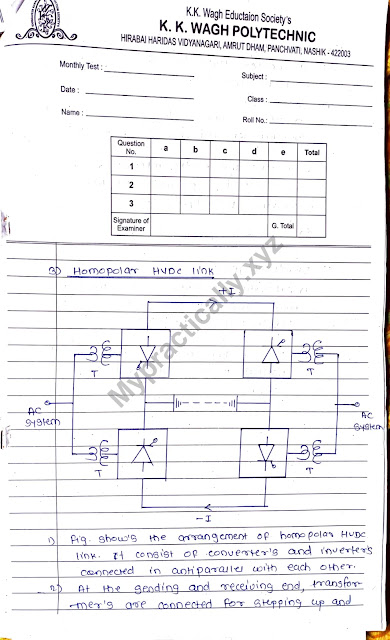 K.K. Wagh Eductaion Society's
K. K. WAGH POLYTECHNIC
HIRABAI HARIDAS VIDYANAGARI, AMRUT DHAM, PANCHVATI, NASHIK - 422003
Monthly Test :
Subject :
Date :
Class :
Name :
Roll No.:
Question No. a b c d e Total
1
2
3
Signature of Examiner G. Total
3) Homopolar HVDC link
+I
T T
AC system
AC system
T T
-I
1) Fig. show's the arrangement of homopolar HVDC
link. It consist of converter's and inverter's
connected in antiparallel with each other.
2) At the sending and receiving end, transfor-
-mer's are connected for stepping up and
Mypractically.xyz